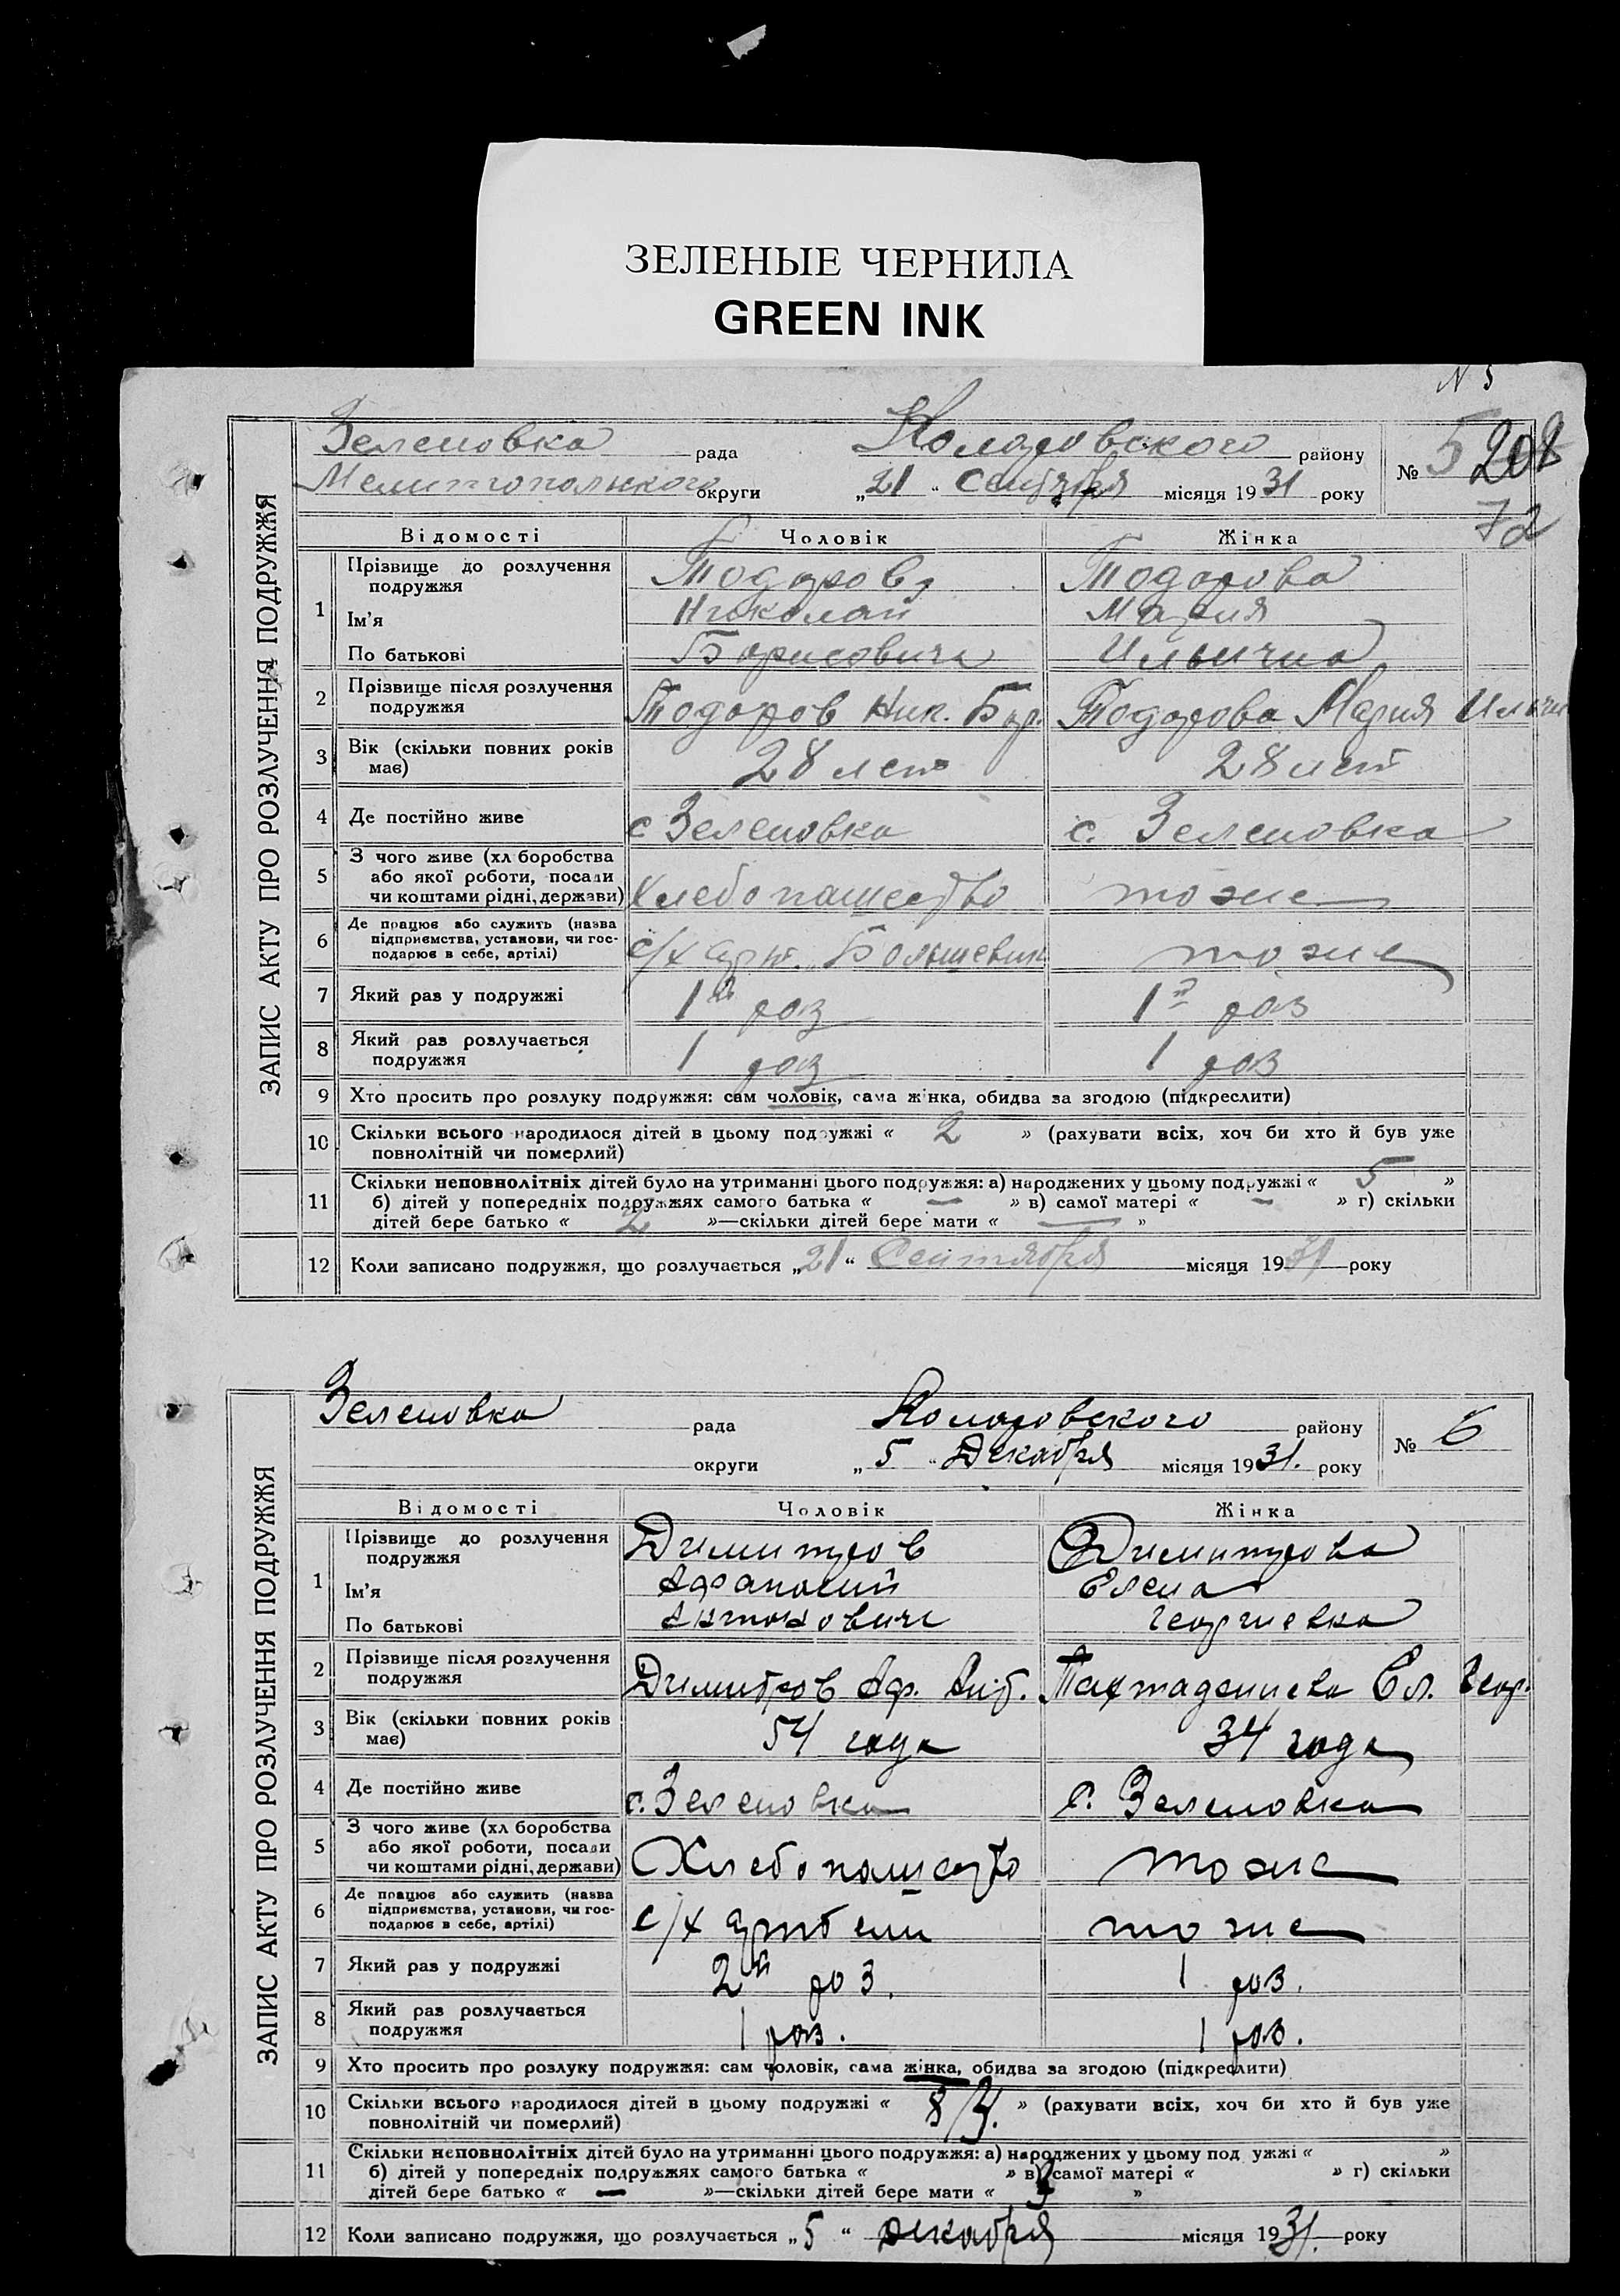 ЗЕЛЕНЫЕ ЧЕРНИЛА
GREEN INK
N 5
ЗАПИС АКТУ ПРО РОЗЛУЧЕННЯ ПОДРУЖЖЯ
Зеленовка рада Коларовского району № 5 208
Мелитопольского округи „21“ Сентября місяця 1931 року
72
Відомості Чоловік Жінка
1 Прізвище до розлучення подружжя Тодоров Тодорова
Ім'я Николай Мария
По батькові Борисович Ильична
2 Прізвище після розлучення подружжя Тодоров Ник. Бор. Тодорова Мария
3 Вік (скільки повних років має) 28 лет 28 лет
4 Де постійно живе с Зеленовка с. Зеленовка
5 З чого живе (хліборобства або якої роботи, посади чи коштами рідні, держави) Хлебопашество тоже
6 Де працює або служить (назва підприємства, установи, чи господарює в себе, артілі) с/х арт. „Большевик тоже
7 Який раз у подружжі 1й раз 1й раз
8 Який раз розлучається подружжя 1 раз 1 раз
9 Хто просить про розлуку подружжя: сам чоловік, сама жінка, обидва за згодою (підкреслити)
10 Скільки всього народилося дітей в цьому подружжі « 2 » (рахувати всіх, хоч би хто й був уже
повнолітній чи померлий)
11 Скільки неповнолітніх дітей було на утриманні цього подружжя: а) народжених у цьому подружжі « 5 »
б) дітей у попередніх подружжях самого батька « — » в) самої матері « — » г) скільки
дітей бере батько « 2 »—скільки дітей бере мати « — »
12 Коли записано подружжя, що розлучається „21“ Сентября місяця 1931 року
ЗАПИС АКТУ ПРО РОЗЛУЧЕННЯ ПОДРУЖЖЯ
Зеленовка рада Коларовского району № 6
округи „5“ Декабря місяця 1931. року
Відомості Чоловік Жінка
1 Прізвище до розлучення подружжя Димитров Димитрова
Ім'я Афанасий Елена
По батькові Антонович Георгиевна
2 Прізвище після розлучення подружжя Димитров Аф. Ант. Ел. Геор.
3 Вік (скільки повних років має) 54 года 34 года
4 Де постійно живе с. Зеленовка с. Зеленовка
5 З чого живе (хліборобства або якої роботи, посади чи коштами рідні, держави) Хлебопашество тоже
6 Де працює або служить (назва підприємства, установи, чи господарює в себе, артілі) с/х артели тоже
7 Який раз у подружжі 2й раз. 1 раз.
8 Який раз розлучається подружжя 1 раз. 1 раз.
9 Хто просить про розлуку подружжя: сам чоловік, сама жінка, обидва за згодою (підкреслити)
10 Скільки всього народилося дітей в цьому подружжі « » (рахувати всіх, хоч би хто й був уже
повнолітній чи померлий)
11 Скільки неповнолітніх дітей було на утриманні цього подружжя: а) народжених у цьому подружжі « »
б) дітей у попередніх подружжях самого батька « » в) самої матері « » г) скільки
дітей бере батько « — »—скільки дітей бере мати « 3 »
12 Коли записано подружжя, що розлучається „5“ декабря місяця 1931. року